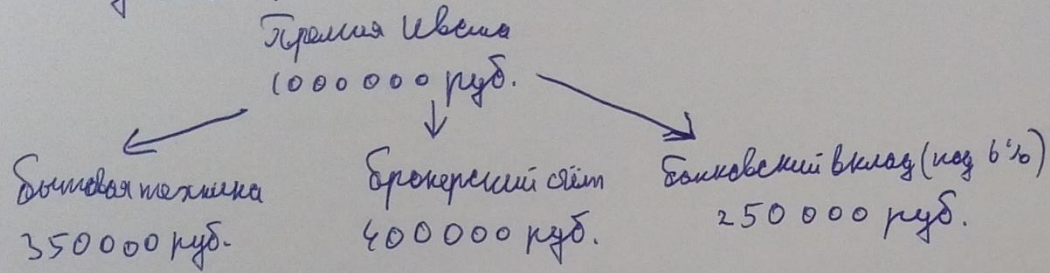 Премия Ивана
1000000 руб.
Бытовая техника
350000 руб.
Брокерский счёт
400000 руб.
Банковский вклад (под 6%)
250000 руб.